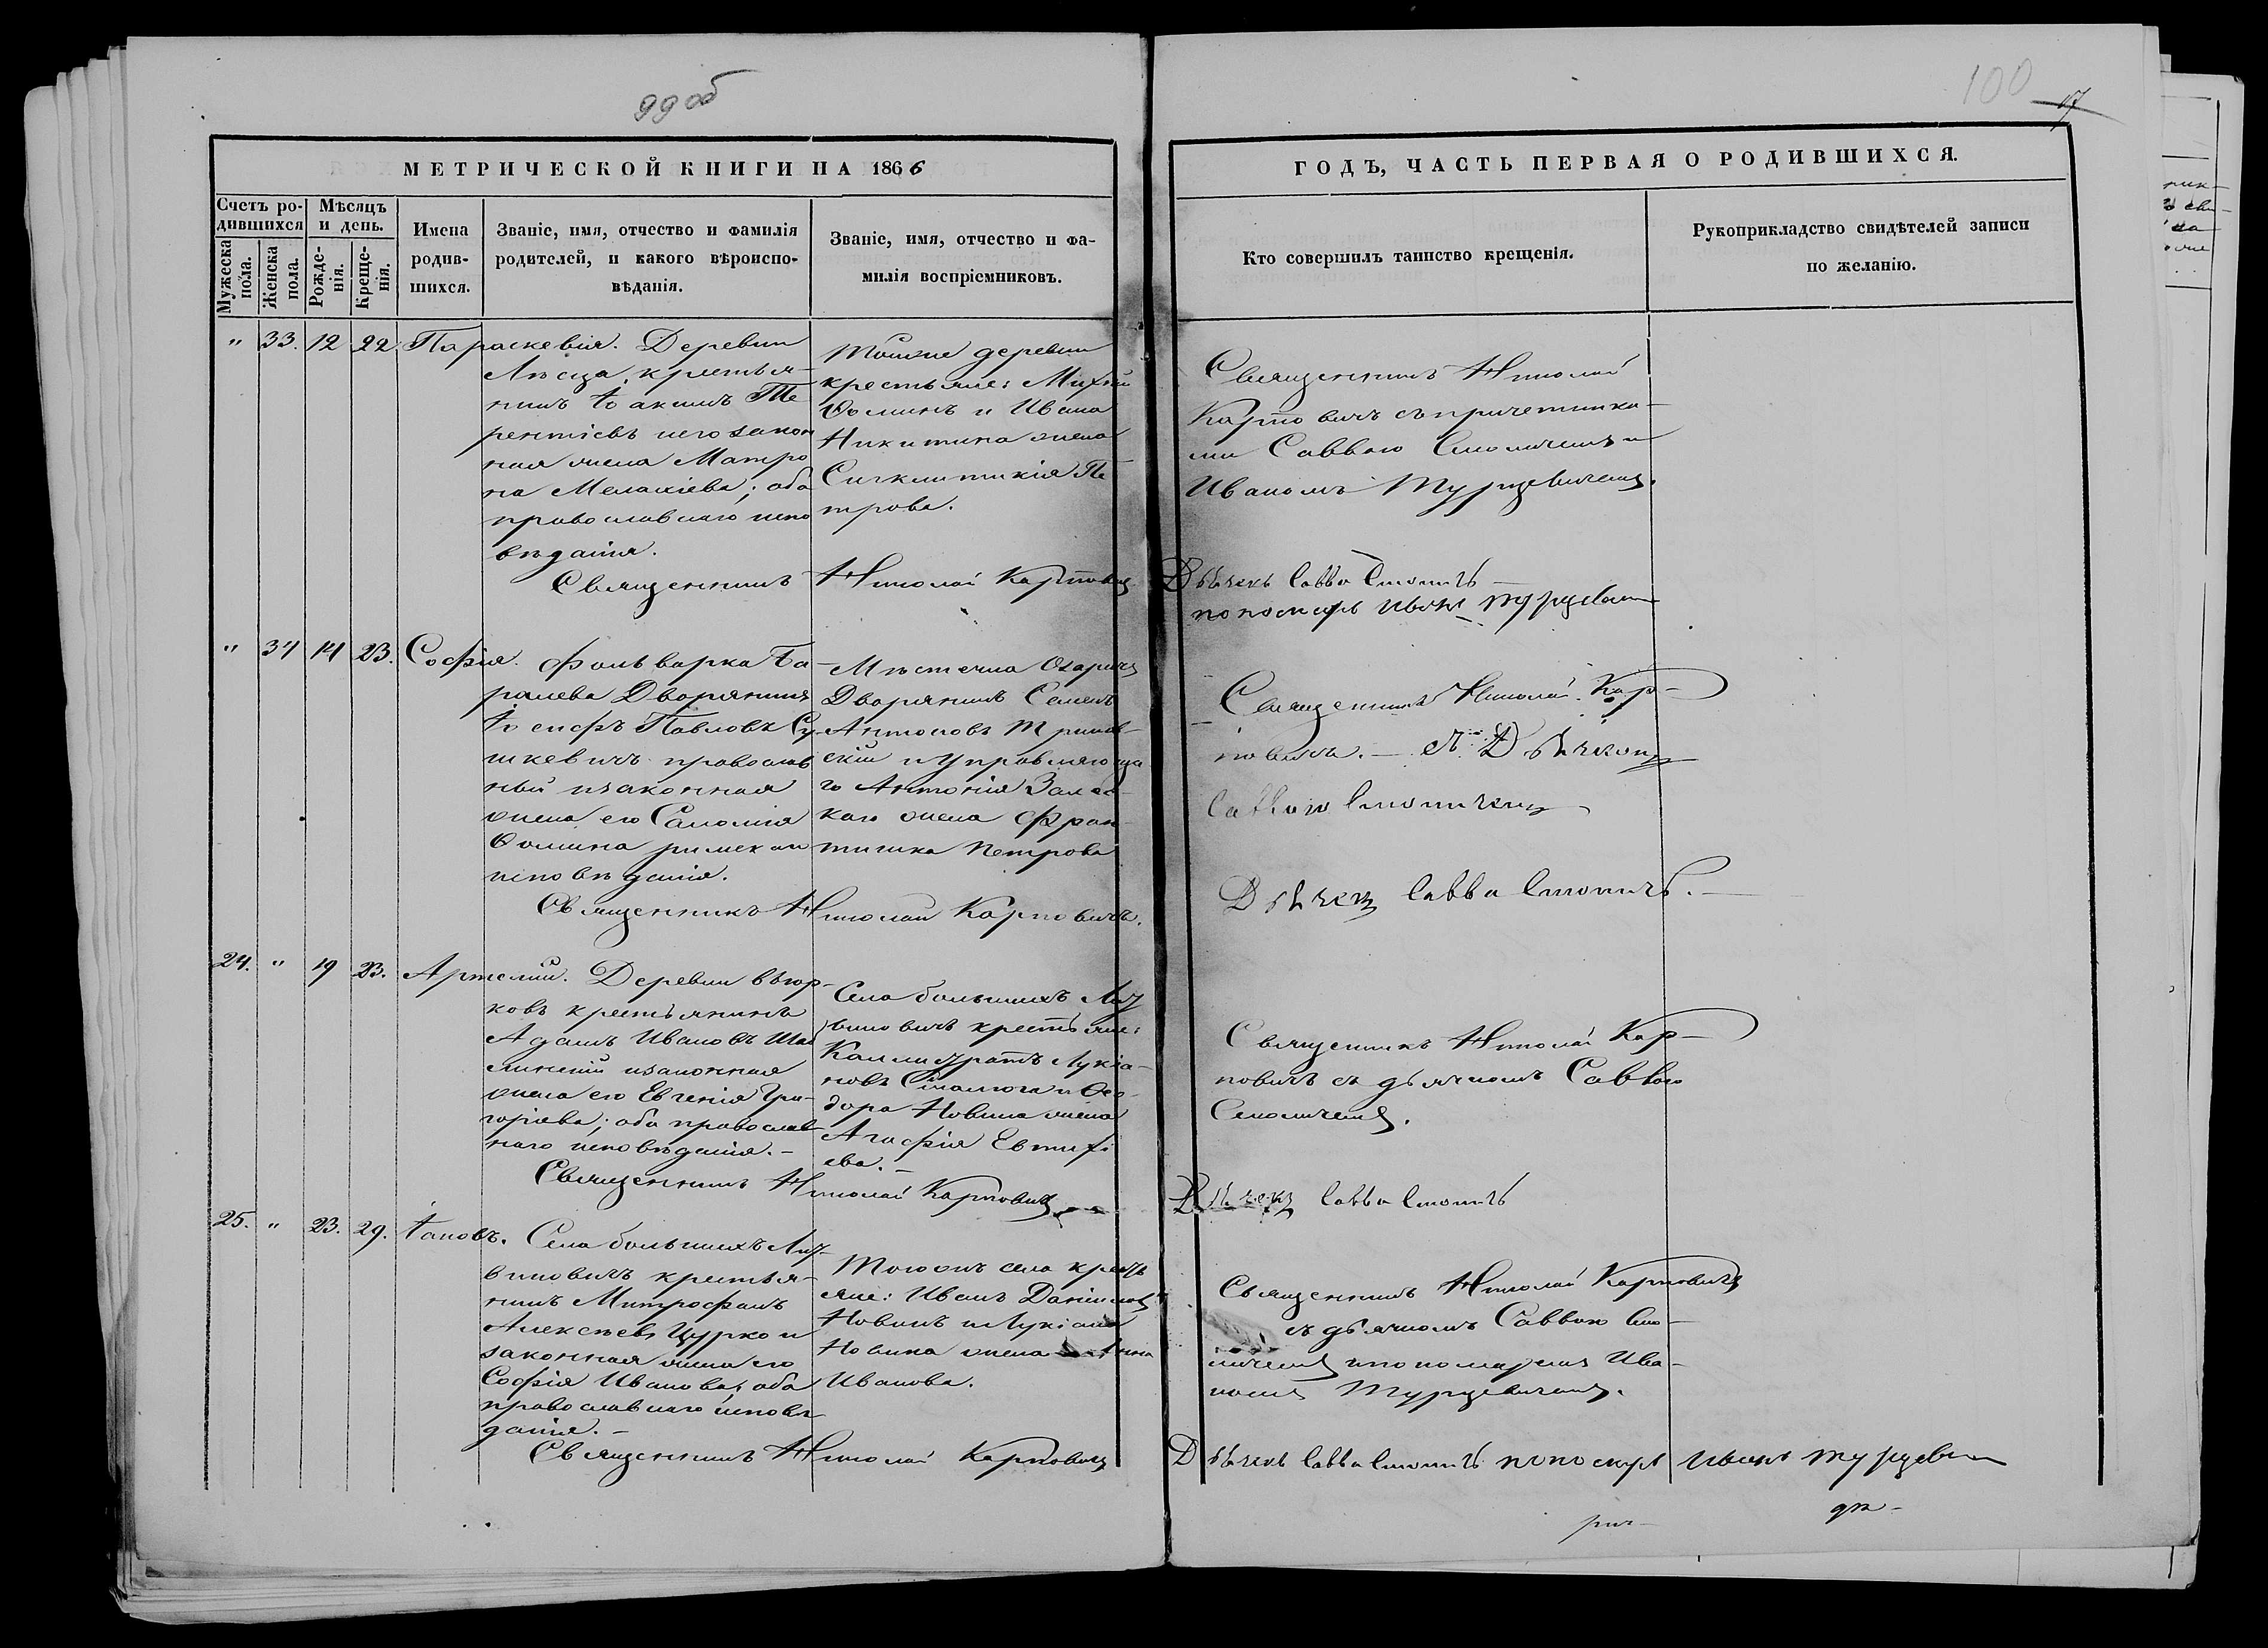 99 об
100
17
МЕТРИЧЕСКОЙ КНИГИ НА 1866
ГОДЪ, ЧАСТЬ ПЕРВАЯ О РОДИВШИХСЯ.
Счетъ ро-
дившихся
Мужеска
пола.
Женска
пола.
Мѣсяцъ
и день.
Рожде-
нія.
Креще-
нія.
Имена
родив-
шихся.
Званіе, имя, отчество и фамилія
родителей, и какого вѣроиспо-
вѣданія.
Званіе, имя, отчество и фа-
милія воспріемниковъ.
Кто совершилъ таинство крещенія.
Рукоприкладство свидѣтелей записи
по желанію.
" 33. 12 22. Параскевія.
Деревни
Лѣсца, крестья-
нинъ Іоакимъ Те
рентіевъ и его закон
ная жена Матро
на Мелакіева; оба
православнаго испо
вѣданія.
Священникъ Николай Карповичъ
Тойже деревни
крестьяне:
Фоминъ и Ивана
Никитина жена
Сигклитикія Пе
трова.
Священникъ Николай
Карповичъ съ причетника-
ми Саввою Смоличемъ и
Иваномъ Турцевичемъ.
Дьячекъ Савва Смоличъ
пономарь Иванъ Турцевичъ
" 34 14 23. Софія.
Фольварка Га-
ралева Дворянинъ
Іосифъ Павловъ Су-
шкевичъ православ
ный и законная
жена его Саломія
Фомина римскаго
исповѣданія.
Священникъ Николай Карповичъ.
Мѣстечка Озаричъ
Дворянинъ Семенъ
Антоновъ
скій и Управляюща
го Антонія Залес-
каго жена Фран
тишка Петрова
Священникъ Николай Кар-
повичъ. — съ Дьячкомъ
Саввою Смоличемъ
Дьячекъ Савва Смоличъ. —
24. " 19 23. Артемій.
Деревни Вьюр-
ковъ крестьянинъ
Адамъ Ивановъ
и законная
жена его Евгенія Гри-
горіева; оба православ-
наго исповѣданія. —
Священникъ Николай Карповичъ
Села большихъ Лит-
виновичъ крестьяне:
Каллистратъ Лукіа-
новъ и Ѳео-
дора Новика жена
Агафія Евтихі
ева. —
Священникъ Николай Кар-
повичъ съ дьячкомъ Саввою
Смоличемъ.
Дьячекъ Савва Смоличъ
25. " 23. 29. Іаковъ.
Села большихъ Лит-
виновичъ крестья-
нинъ Митрофанъ
Алексѣевъ Цурко и
законная жена его
Софія Иванова; оба
православнаго исповѣ
данія. —
Священникъ Николай Карповичъ
Тогожъ села кресть
яне: Иванъ Даніиловъ
Новикъ и Лукіана
Новика жена Анна
Иванова.
Священникъ Николай Карповичъ
съ дьячкомъ Саввою Смо-
личемъ и пономаремъ Ива-
номъ Турцевичемъ.
Дьячекъ Савва Смоличъ пономарь Иванъ Турцевичъ